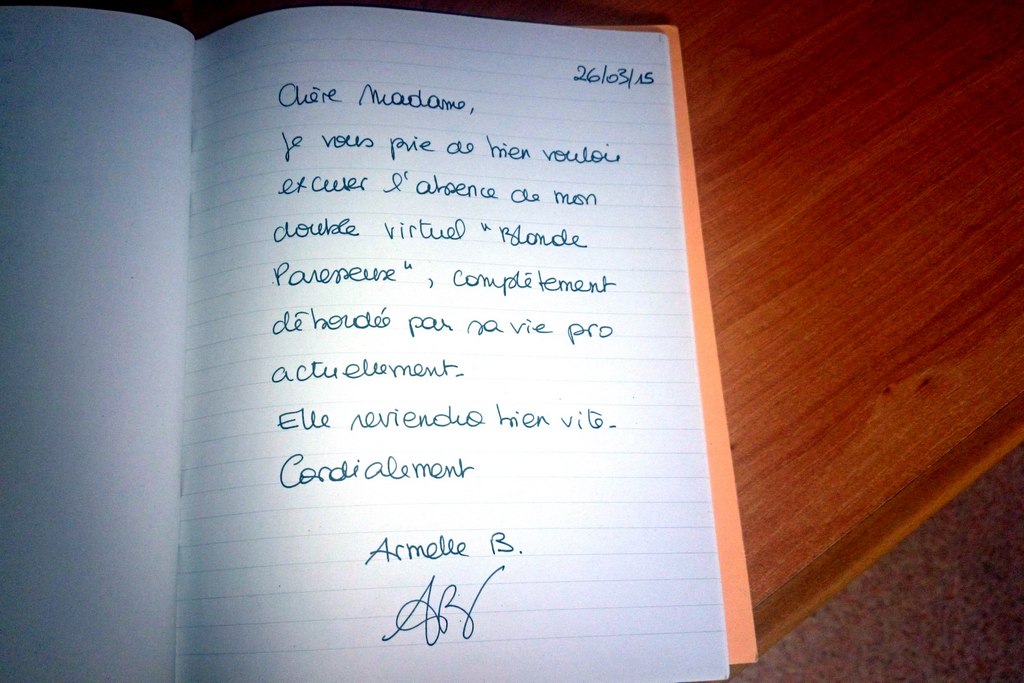 26/03/15
Chère Madame,
Je vous prie de bien vouloir
excuser l'absence de mon
double virtuel "Blonde
Paresseuse", complètement
débordée par sa vie pro
actuellement.
Elle reviendra bien vite.
Cordialement
Armelle B.
AB